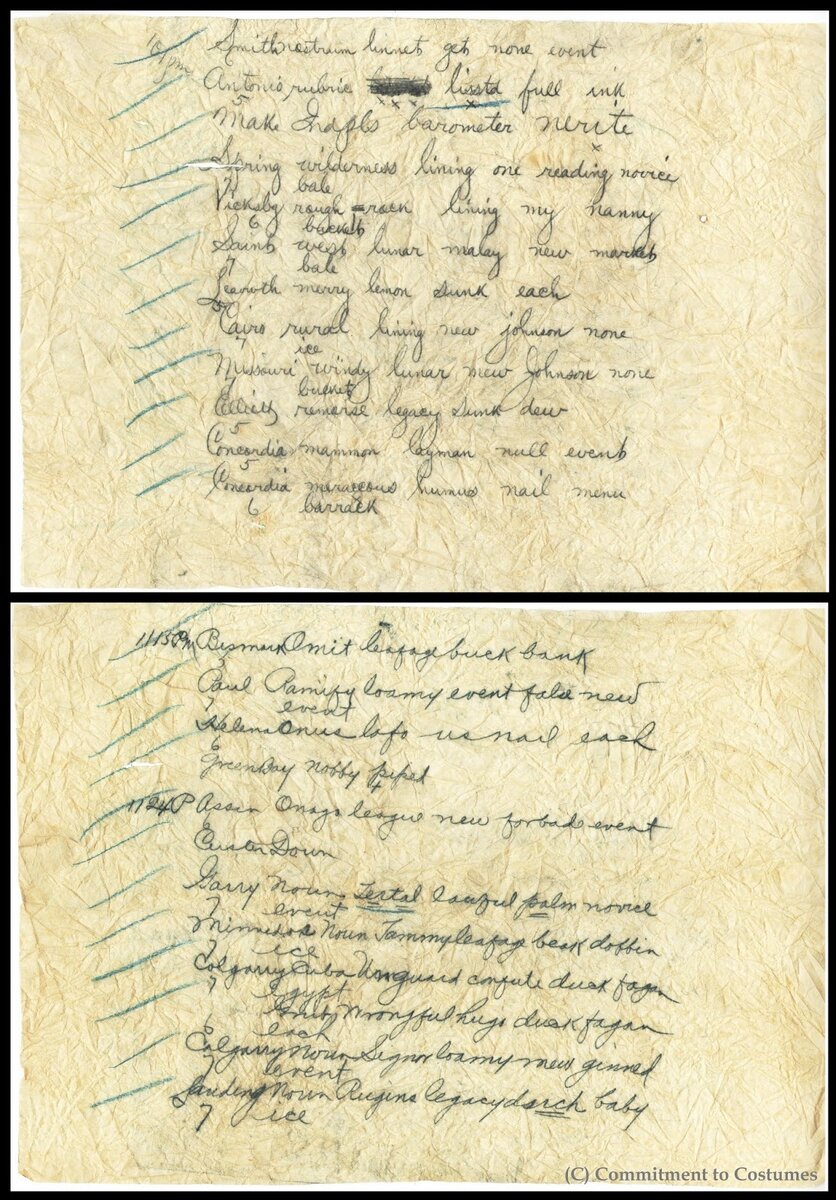 10 pm
Smith nostrum linnet get none event
Antonio rubric lisstd full ink
5
Make Indpls barometer nerite
Spring wilderness lining one reading novice
7 bale
Vicksbg rough rock lining my nanny
6 bucket
Saint west lunar malay new market
7 bale
Leawth merry lemon sunk each
5
Cairo rural lining new johnson none
7 ice
Missouri windy lunar mew Johnson none
7 bucket
Elliott remorse legacy sunk dew
5
Concordia mammon layman null event
5
Concordia meraccous humus nail menu
6 barrack
1113 PM Bismark Omit leafage buck bank
5
Paul Ramify loamy event false new
7 event
Helena Onus lofo us nail each
6
Green Bay nobby piped
4
1124 P Assin Onago league new forbade event
Custer Down
Garry Noun Tertal lawful palm novice
7 event
Minnedos Noun Jammy leafage beak dobbin
7 ice
Calgarry Cuba Unguard confute duck fagan
7 Egypt
Grub Wrongful hugo duck fagan
each
Calgarry Noun Signor loamy mew ginned
7 event
Landing Noun Rugins legacy darch baby
7 ice
(C) Commitment to Costumes